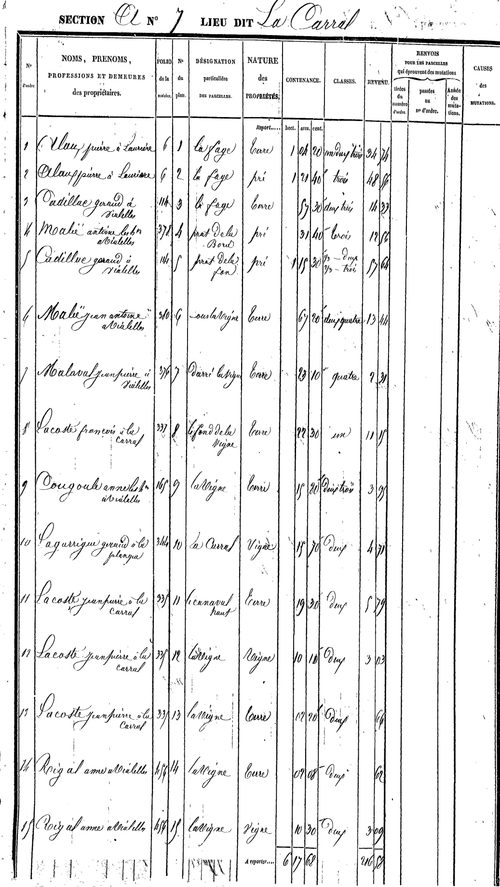 SECTION A N° 7 LIEU DIT La Carral
N° d'ordre
NOMS, PRENOMS,
PROFESSIONS ET DEMEURES
des propriétaires.
FOLIO de la matrice.
N° du plan.
DÉSIGNATION
particulière
DES PARCELLES.
NATURE
des
PROPRIÉTÉS.
CONTENANCE.
CLASSES.
REVENU.
RENVOIS
POUR LES PARCELLES
qui éprouvent des mutations
tirées du numéro d'ordre.
passées au n° d'ordre.
Année des mutations.
CAUSES
des
MUTATIONS.
Report....
hect. ares. cent.
1 pierre à 6 1 la fage terre 1 04 20 34 74
2 pierre à 6 2 la fage pré 1 21 40 trois 48 56
3 Cadillac geraud à vialelles 114 3 le fage terre 57 30 deux trois 14 33
4 Malié antoine à vialelles 378 4 prat de la pré 31 40 trois 12 56
5 Cadillac geraud à vialelles 114 5 prat de la fon pré 1 15 30 deux trois 57 64
6 Malié jean antoine à vialelles 380 6 sous la vigne terre 67 20 deux quatre 13 44
7 Malaval jean pierre à vialelles 376 7 darré la vigne terre 23 10 quatre 2 31
8 Lacoste francois à la carral 331 8 le fond de la vigne terre 22 30 un 11 15
9 Cougoule anne à vialelles 165 9 la vigne terre 15 20 deux trois 3 95
10 Lagarrigue geraud à la 344 10 La Carral Vigne 15 70 deux 4 71
11 Lacoste jean pierre à la carral 335 11 haut terre 19 30 deux 5 79
12 Lacoste jean pierre à la carral 335 12 la vigne Vigne 10 10 deux 3 03
13 Lacoste jean pierre à la carral 335 13 la vigne terre 02 20 deux 66
14 Rigal anne à vialelles 456 14 la vigne terre 02 08 deux 62
15 Rigal anne à vialelles 456 15 la vigne Vigne 10 30 deux 3 09
A reporter.... 6 17 68 216 58